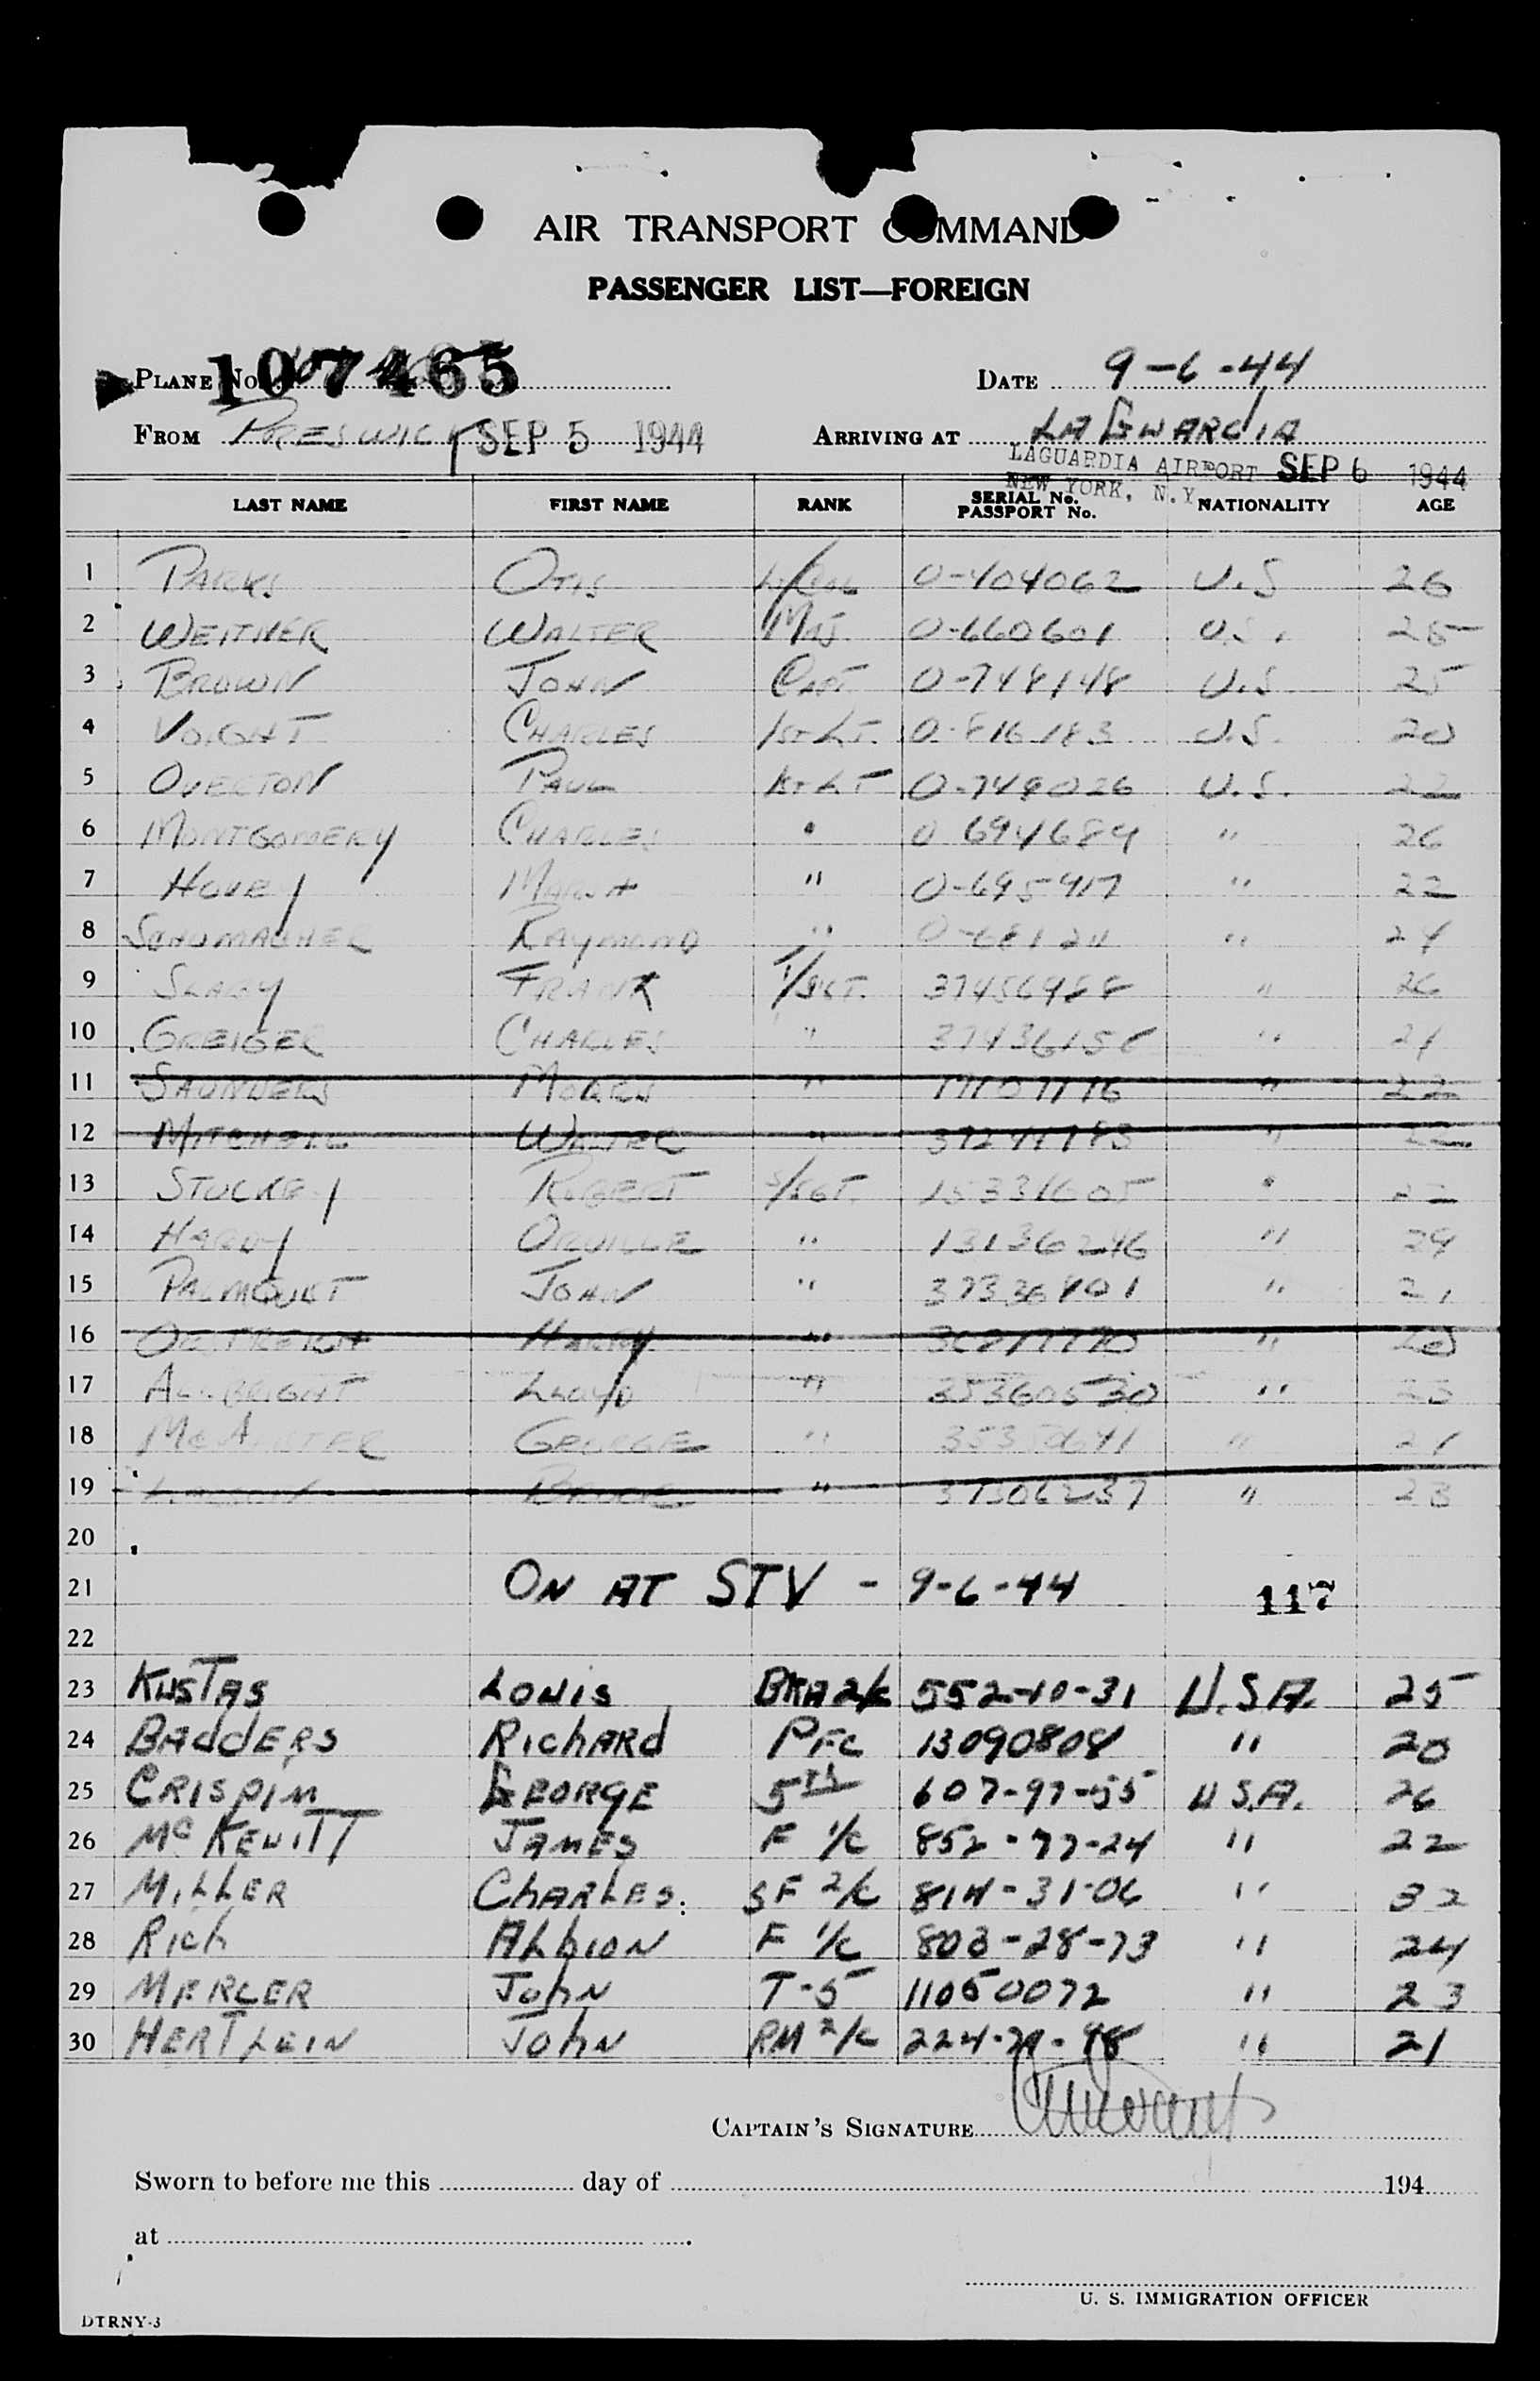 AIR TRANSPORT COMMAND
PASSENGER LIST—FOREIGN
PLANE No. 107465 DATE 9-6-44
FROM PRESWICK SEP 5 1944 ARRIVING AT LA GUARDIA
LAGUARDIA AIRPORT SEP 6 1944
NEW YORK, N.Y.
LAST NAME FIRST NAME RANK SERIAL No. PASSPORT No. NATIONALITY AGE
1 PARKS OTIS Lt/COL O-404062 U.S 26
2 WEITNER WALTER MAJ. O-660601 U.S. 25
3 BROWN JOHN CAPT. O-748148 U.S. 25
4 VOIGHT CHARLES 1ST LT. O-816183 U.S. 20
5 OVERTON PAUL 1ST LT O-749026 U.S. 22
6 MONTGOMERY CHARLES " O 694689 " 26
7 HOVEY " O-695917 " 22
8 SCHUMACHER RAYMOND " " 24
9 SLAGY FRANK T/SGT. " 26
10 GREIGER CHARLES " " 21
11 SAUNDERS " " 22
12 MITCHELL WALTER " " 22
13 STUCKEY ROBERT S/SGT. 15331605 " 22
14 HARDY ORVILLE " 13136246 " 29
15 PALMQUIST JOHN " " 21
16 HARRY " "
17 ALLBRIGHT LLOYD " 35360530 "
18 GEORGE " " 21
19 " 37306237 " 23
20
21 ON AT STV - 9-6-44 117
22
23 KUSTAS LOUIS 552-10-31 U.S.A. 25
24 BADDERS RICHARD PFC 13090808 " 20
25 CRISPIM GEORGE 607-97-55 U.S.A. 26
26 McKEVITT JAMES F 1/c 852-77-24 " 22
27 MILLER CHARLES. SF 2/c 814-31-06 " 32
28 RICH ALBION F 1/c 803-28-73 " 24
29 MERCER JOHN T-5 11050072 " 23
30 HERTLEIN JOHN RM 2/c " 21
CAPTAIN'S SIGNATURE
Sworn to before me this day of 194
at
U. S. IMMIGRATION OFFICER
DTRNY-3